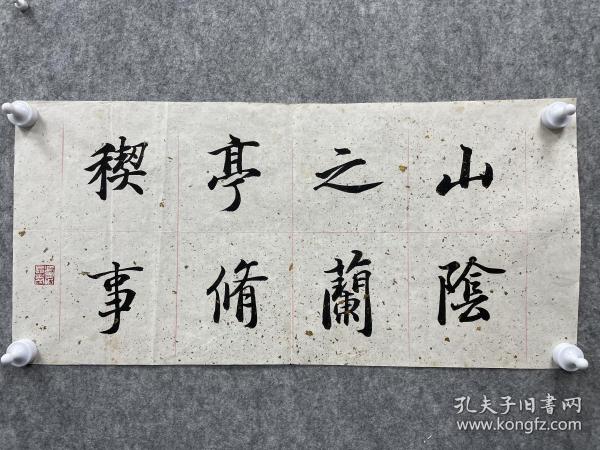 山陰
之蘭
亭脩
稧事
孔夫子旧書网
www.kongfz.com